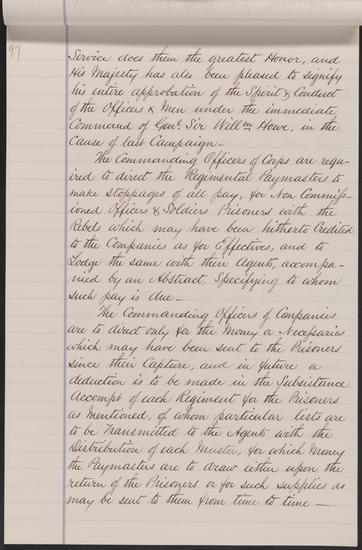 97
Service does them the greatest Honor, and
His Majesty has also been pleased to signify
his entire approbation of the Spirit & Conduct
of the Officers & Men under the immediate
Command of Genl. Sir Willm Howe, in the
Cause of last Campaign —
The Commanding Officers of Corps are requ-
ired to direct the Regimental Paymasters to
make stoppages of all pay, for Non Commiss-
ioned Officers & Soldiers Prisoners with the
Rebels which may have been hitherto Credited
to the Companies as for Effectives, and to
Lodge the same with their Agents, accompa-
nied by an Abstract, Specifying to whom
such pay is due —
The Commanding Officers of Companies
are to direct only for the Money or Necessaries
which may have been sent to the Prisoners
since their Capture, and in future a
deduction is to be made in the Subsistance
Accompt of each Regiment for the Prisoners
as Mentioned, of whom particular lists are
to be Transmitted to the Agents with the
Distribution of each Muster, for which Money
the Paymasters are to draw either upon the
return of the Prisoners or for such supplies as
may be sent to them from time to time —